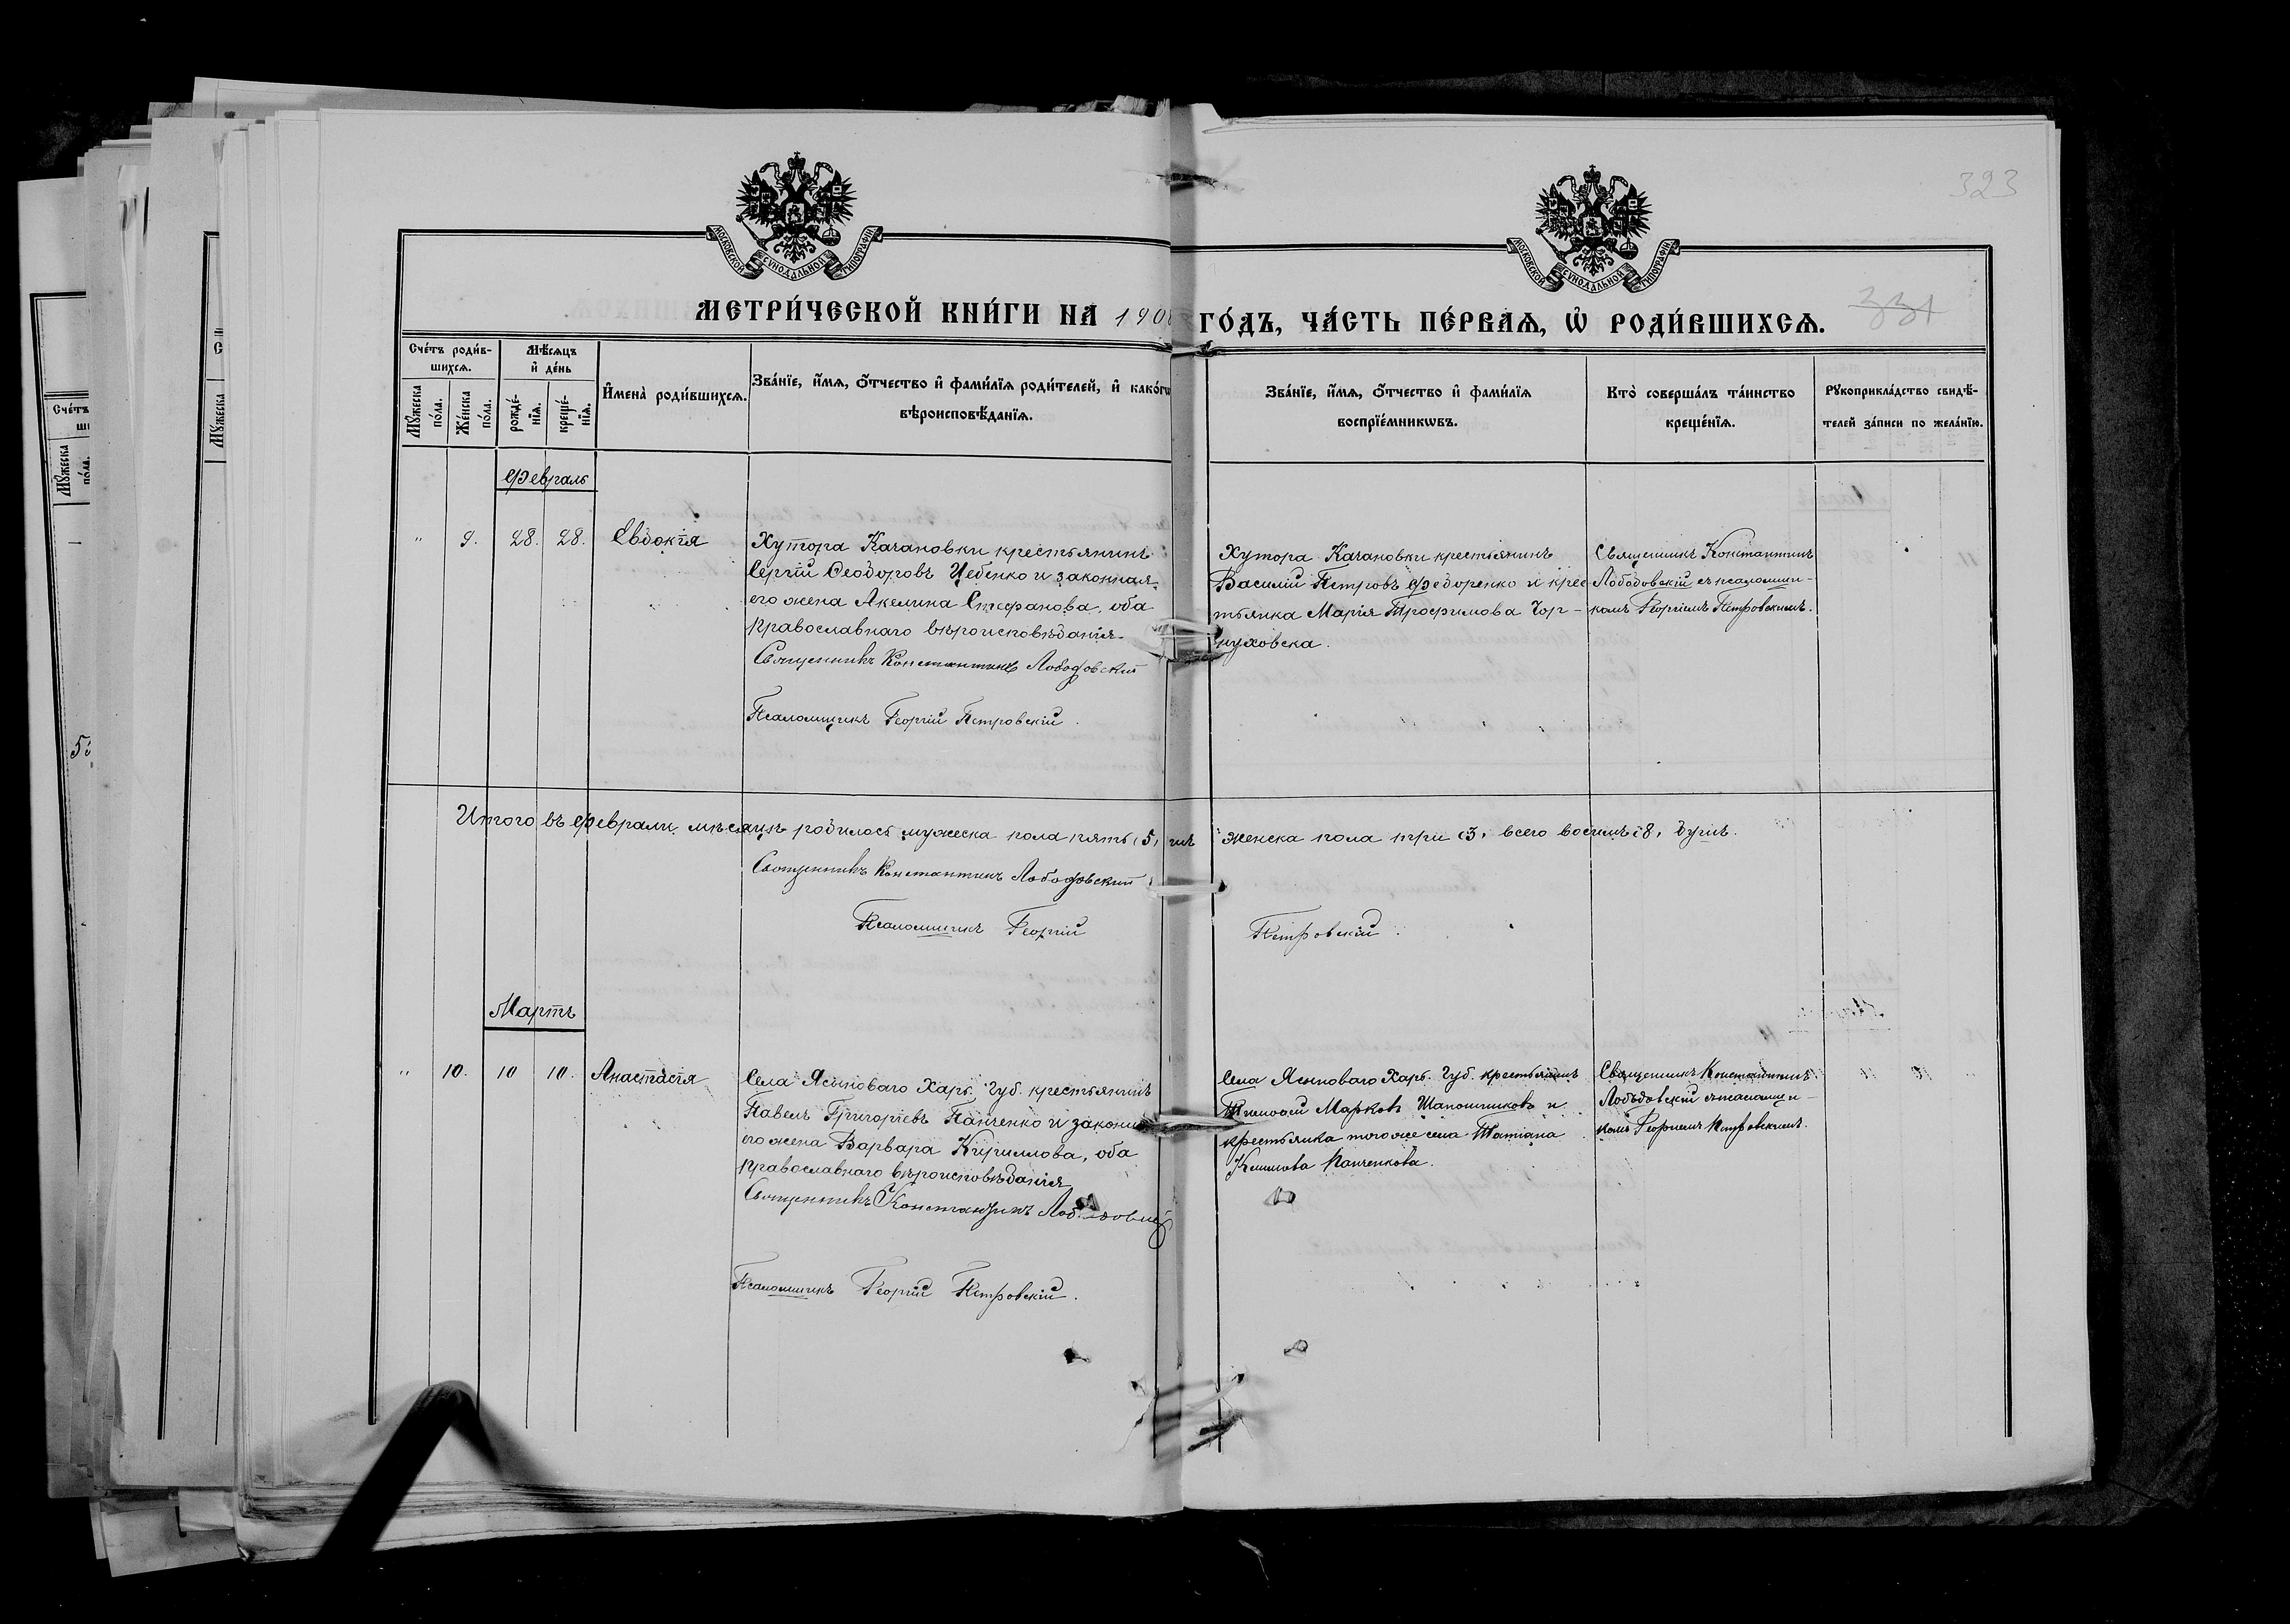 323
331
МОСКОВСКОЙ СѴНОДАЛЬНОЙ ТИПОГРАФІИ
МОСКОВСКОЙ СѴНОДАЛЬНОЙ ТИПОГРАФІИ
МЕТРИ́ЧЕСКОЙ КНИ́ГИ НА 190
ГО́ДЪ, ЧА́СТЬ ПЕ́РВАѦ, Ѽ РОДИ́ВШИХСѦ.
Сче́тъ роди́в-
шихсѧ.
Мꙋ́жеска по́ла.
Же́нска по́ла.
Мѣ́сѧцъ
и҆ де́нь
рожде́-нїѧ.
креще́-нїѧ.
И҆мена̀ роди́вшихсѧ.
Зва́нїе, и҆́мѧ, ѻ҆́тчество и҆ фами́лїѧ роди́телей, и҆ како́гѡ
вѣроисповѣ́данїѧ.
Зва́нїе, и҆́мѧ, ѻ҆́тчество и҆ фами́лїѧ
воспрїе́мникѡвъ.
Кто̀ соверша́лъ та́инство
креще́нїѧ.
Рꙋкоприкла́дство свидѣ́-
телей за́писи по жела́нїю.
Февраль
" 9. 28. 28. Евдокія
Хутора Качановки крестьянинъ
Сергій Ѳеодоровъ Цебенко и законная
его жена Акелина Стефанова, оба
православнаго вѣроисповѣданія.
Священникъ Константинъ Лободовскій
Псаломщикъ Георгій Петровскій.
Хутора Качановки крестьянинъ
Василій Петровъ Федоренко и крес-
тьянка Марія Трофимова Чор-
нуховска.
Священникъ Константинъ
Лободовскій съ псаломщи-
комъ Георгіемъ Петровскимъ.
Итого въ февралѣ мѣсяцѣ родилось мужеска пола пять (5)
женска пола три (3), всего восемь (8) душъ.
Священникъ Константинъ Лободовскій
Псаломщикъ Георгій Петровскій.
Мартъ
" 10. 10 10. Анастасія
Села Ясиноваго Харь. Губ. крестьянинъ
Павелъ Григоріевъ Панченко и законная
его жена Варвара Кириллова, оба
православнаго вѣроисповѣданія
Священникъ Константинъ
Псаломщикъ Георгій Петровскій.
Села Ясиноваго Харь. Губ. крестьянинъ
Тимоѳей Марковъ Шапошниковъ и
крестьянка того же села Татіана
Климова Панченкова.
Священникъ Константинъ
Лободовскій съ псаломщи-
комъ Георгіемъ Петровскимъ.